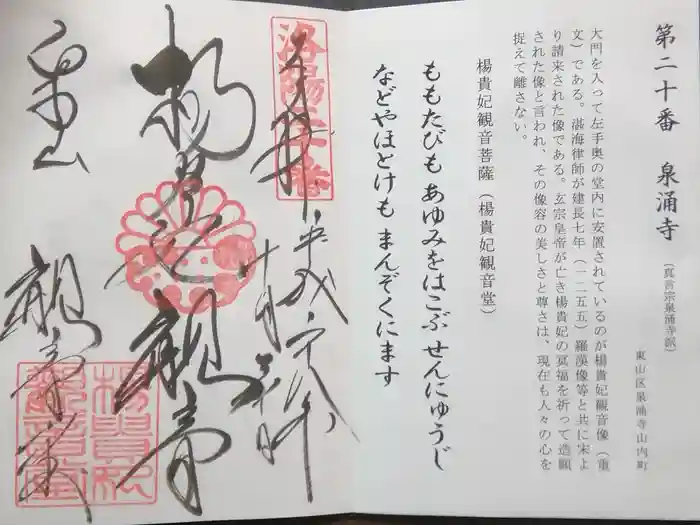 第二十番　泉涌寺（真言宗泉涌寺派）
東山区泉涌寺山内町
大門を入って左手奥の堂内に安置されているのが楊貴妃観音像（重
文）である。湛海律師が建長七年（一二五五）羅漢像等と共に宋よ
り請来された像である。玄宗皇帝が亡き楊貴妃の冥福を祈って造顕
された像と言われ、その像容の美しさと尊さは、現在も人々の心を
捉えて離さない。
楊貴妃観音菩薩（楊貴妃観音堂）
ももたびも あゆみをはこぶ せんにゅうじ
などやほとけも まんぞくにます
洛陽二十番
奉拝
平成
楊貴妃観音
泉山
観音堂
楊貴妃
観音堂